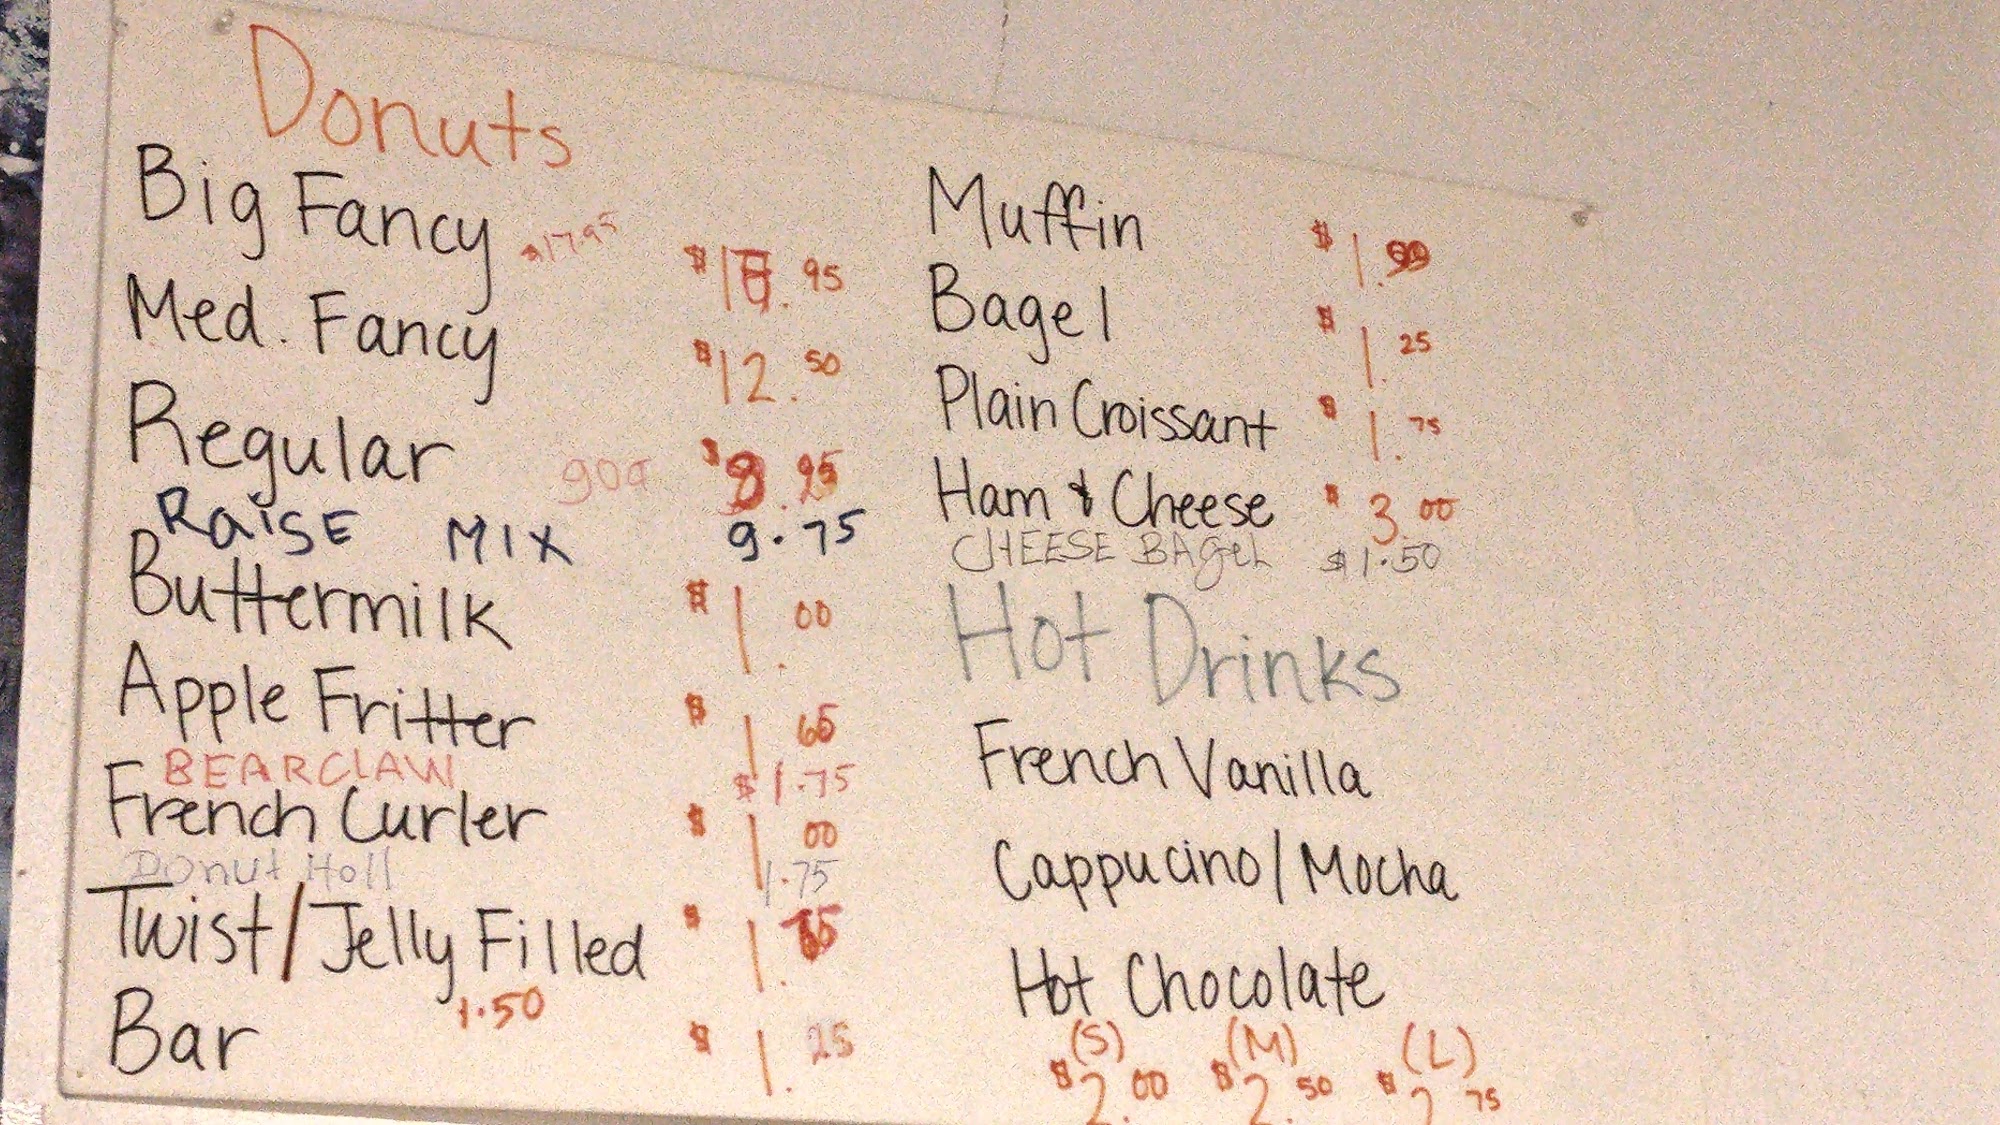 Donuts
Big Fancy $17.95 $17.95
Med. Fancy $12.50
Regular 90¢ $8.95
RaiSE MIX 9.75
Buttermilk $1.00
Apple Fritter $1.65
BEARCLAW $1.75
French Curler $1.00
Donut Holl 1.75
Twist/Jelly Filled $1.
1.50
Bar $1.25
Muffin $1.99
Bagel $1.25
Plain Croissant $1.75
Ham & Cheese $3.00
CHEESE BAgEL $1.50
Hot Drinks
French Vanilla
Cappucino/Mocha
Hot Chocolate
(S) (M) (L)
$2.00 $2.50 $2.75